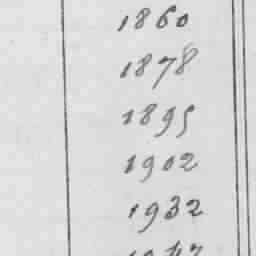 1860
1878
1895
1902
1932